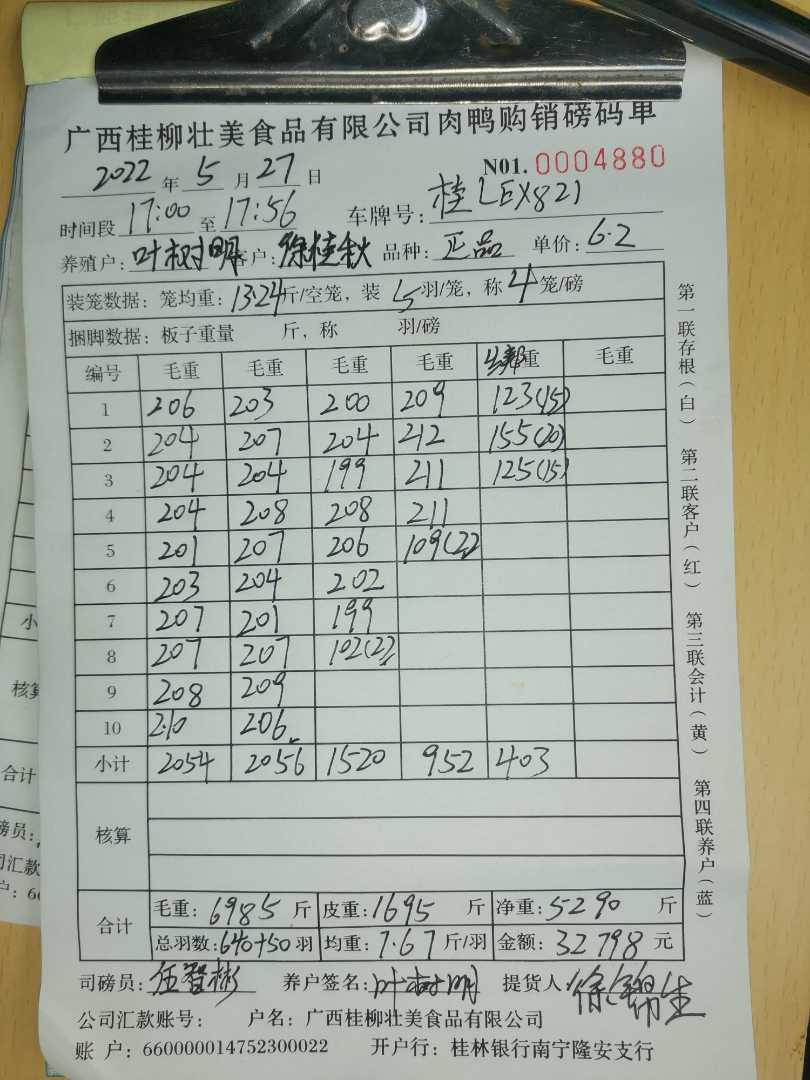 广西桂柳壮美食品有限公司肉鸭购销磅码单
2022 年 5 月 27 日 N01. 0004880
时间段 17:00 至 17:56 车牌号: 桂LEX821
养殖户: 叶树明 客户: 徐桂秋 品种: 正品 单价: 6.2
装笼数据: 笼均重: 13.24 斤/空笼, 装 5 羽/笼, 称 4 笼/磅
捆脚数据: 板子重量 斤, 称 羽/磅
编号 毛重 毛重 毛重 毛重 重 毛重
1 206 203 200 209 123(15)
2 204 207 204 212 155(20)
3 204 204 199 211 125(15)
4 204 208 208 211
5 201 207 206 109(22)
6 203 204 202
7 207 201 199
8 207 207 102(22)
9 208 209
10 210 206
小计 2054 2056 1520 952 403
核算
合计 毛重: 6985 斤 皮重: 1695 斤 净重: 5290 斤
总羽数: 640+50 羽 均重: 7.67 斤/羽 金额: 32798 元
司磅员: 伍智彬 养户签名: 叶树明 提货人: 徐锦生
公司汇款账号: 户名: 广西桂柳壮美食品有限公司
账 户: 660000014752300022 开户行: 桂林银行南宁隆安支行
第一联存根(白) 第二联客户(红) 第三联会计(黄) 第四联养户(蓝)
小
核算
合计
磅员:
司汇款
户: 66